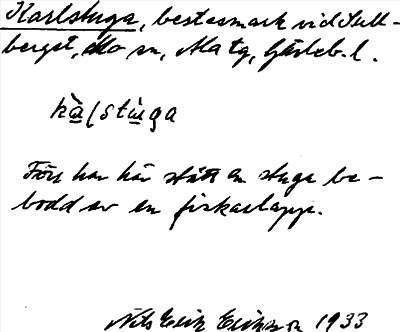 Karlstuga, bestesmark vid Tull-
berget, Mo sn, Ala tg, Gävleb. l.
kàlstùga
Förr har här stått en stuga be-
bodd av en fiskarlapp.
Nils Erik Eriksson 1933